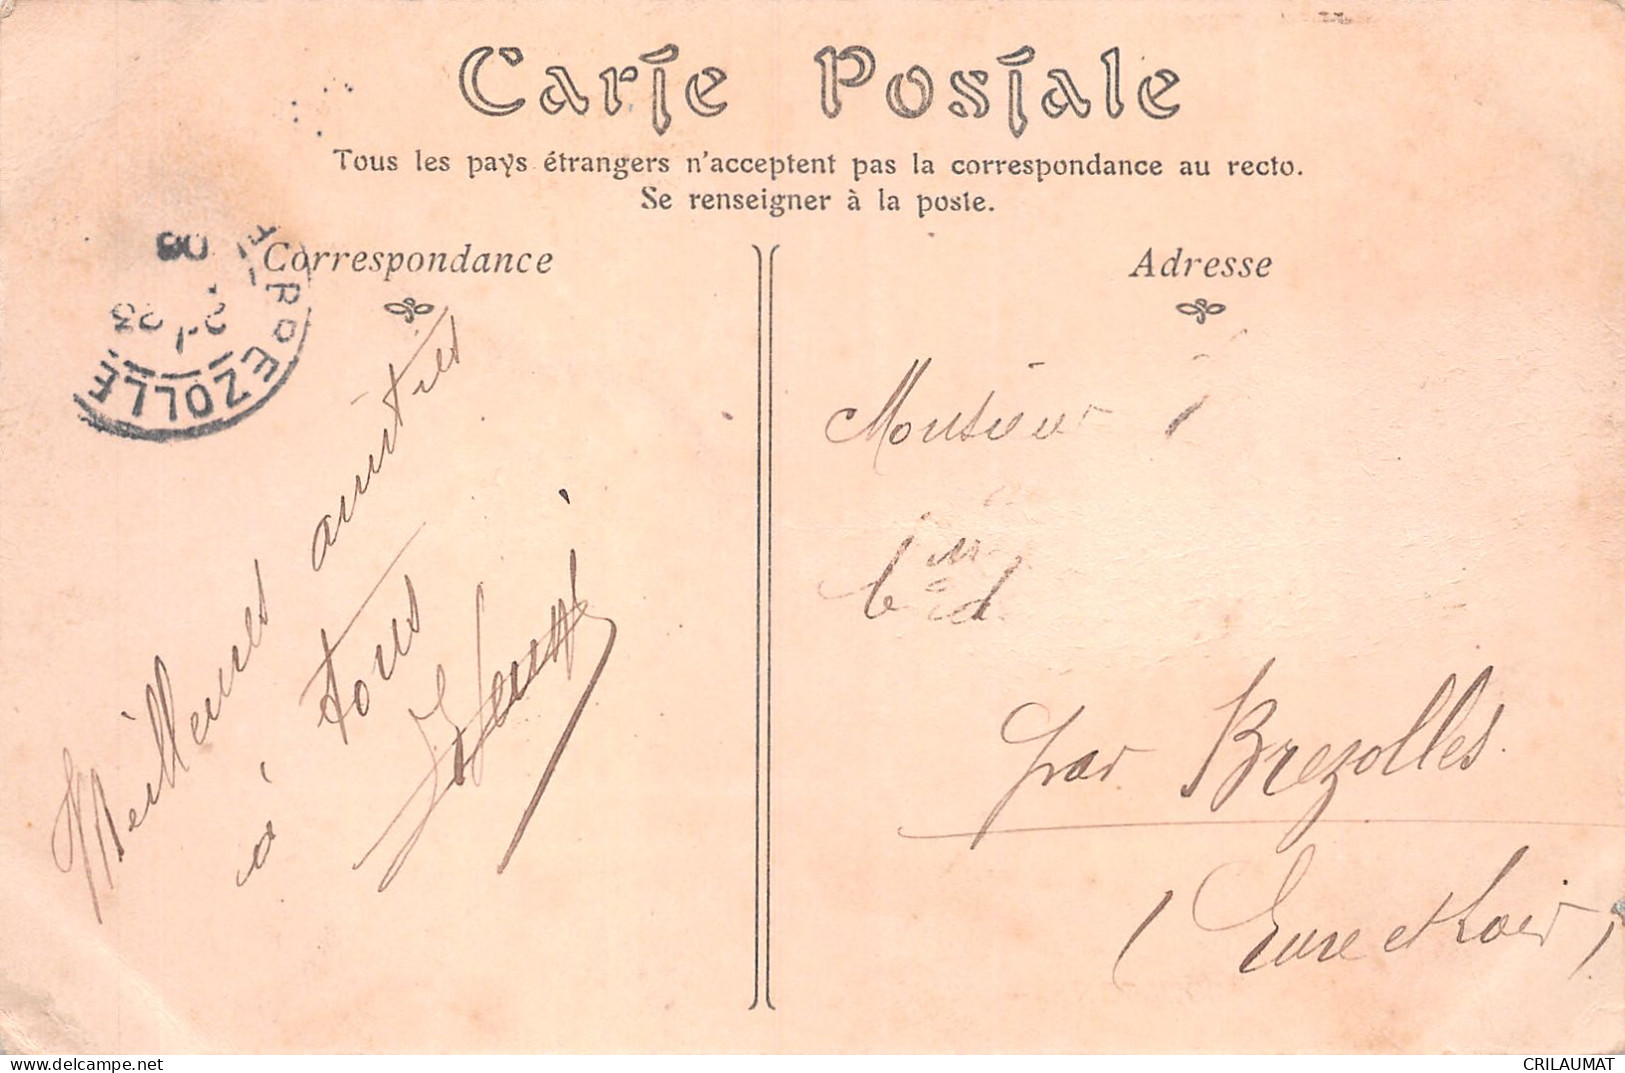 Carte Postale
Tous les pays étrangers n'acceptent pas la correspondance au recto.
Se renseigner à la poste.
Correspondance
Adresse
BREZOLLE
23
Meilleures amitiés
à tous
Monsieur
par Brezolles
(Eure et Loir)
delcampe.net
CRILAUMAT